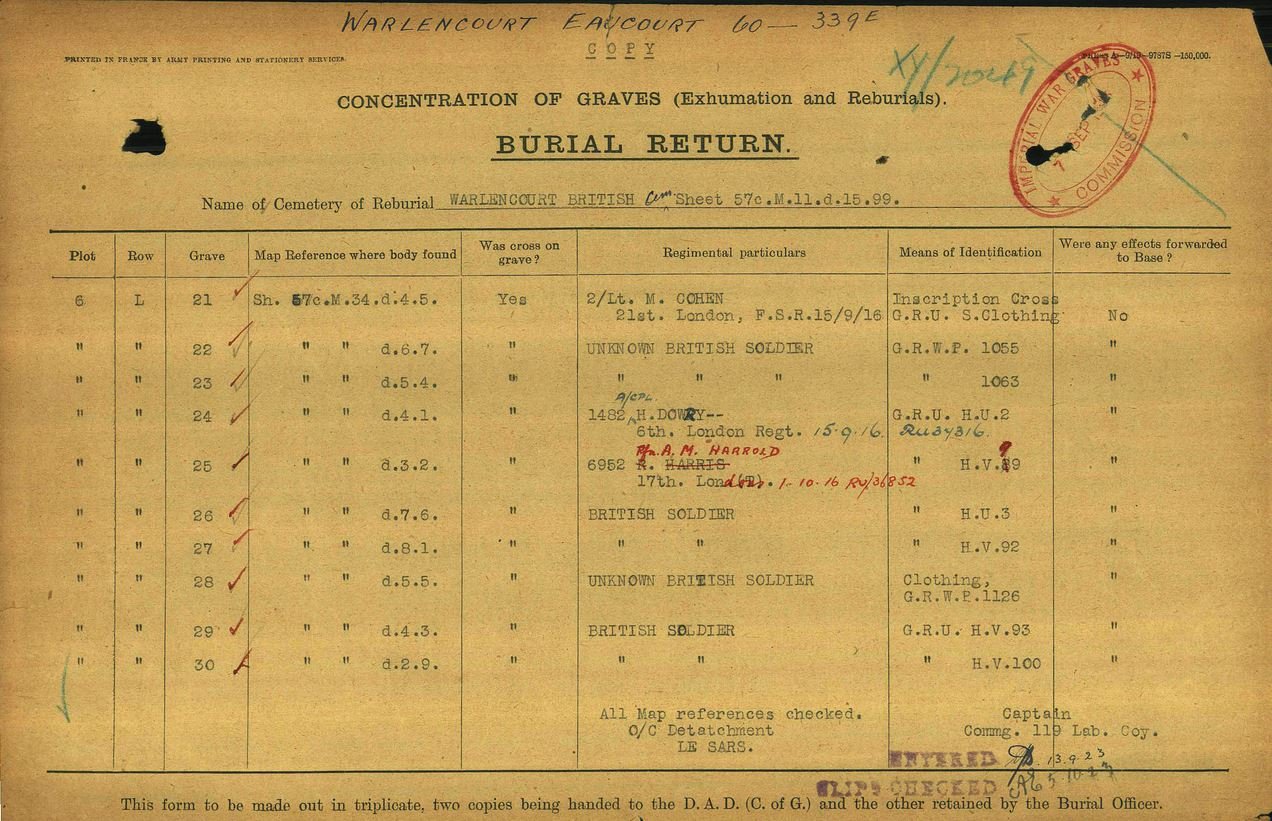 WARLENCOURT EAUCOURT 60 — 339E
COPY
PRINTED IN FRANCE BY ARMY PRINTING AND STATIONERY SERVICES.
9/19—9787S—150,000.
IMPERIAL WAR GRAVES COMMISSION
7 SEP
CONCENTRATION OF GRAVES (Exhumation and Reburials).
BURIAL RETURN.
Name of Cemetery of Reburial WARLENCOURT BRITISH Cem Sheet 57c.M.11.d.15.99.
Plot Row Grave Map Reference where body found Was cross on grave? Regimental particulars Means of Identification Were any effects forwarded to Base?
6 L 21 Sh. 57c.M.34.d.4.5. Yes 2/Lt. M. COHEN Inscription Cross
21st. London, F.S.R.15/9/16 G.R.U. S.Clothing No
" " 22 " " d.6.7. " UNKNOWN BRITISH SOLDIER G.R.W.P. 1055 "
" " 23 " " d.5.4. " " " " " 1063 "
A/CPL.
" " 24 " " d.4.1. " 1482 H.DOWRY-- G.R.U. H.U.2 "
6th. London Regt. 15.9.16. RU34316.
Pte. A. M. HARROLD 9
" " 25 " " d.3.2. " 6952 R. HARRIS " H.V.89 "
17th. Lond(T). 1-10-16 RU/36852
" " 26 " " d.7.6. " BRITISH SOLDIER " H.U.3 "
" " 27 " " d.8.1. " " " " H.V.92 "
" " 28 " " d.5.5. " UNKNOWN BRITISH SOLDIER Clothing, "
G.R.W.P.1126
" " 29 " " d.4.3. " BRITISH SOLDIER G.R.U. H.V.93 "
" " 30 " " d.2.9. " " " " H.V.100 "
All Map references checked. Captain
O/C Detatchment Commg. 119 Lab. Coy.
LE SARS.
ENTERED 13.9.23
SLIPS CHECKED 5.10.23
This form to be made out in triplicate, two copies being handed to the D. A. D. (C. of G.) and the other retained by the Burial Officer.